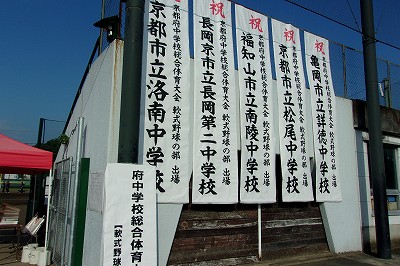 祝
京都府中学校総合体育大会 軟式野球の部 出場
亀岡市立詳徳中学校
祝
京都府中学校総合体育大会 軟式野球の部 出場
京都市立松尾中学校
祝
京都府中学校総合体育大会 軟式野球の部 出場
福知山市立南陵中学校
祝
京都府中学校総合体育大会 軟式野球の部 出場
長岡京市立長岡第二中学校
京都府中学校総合体育大会 軟式野球の部 出場
京都市立洛南中学校
府中学校総合体育
【軟式野球